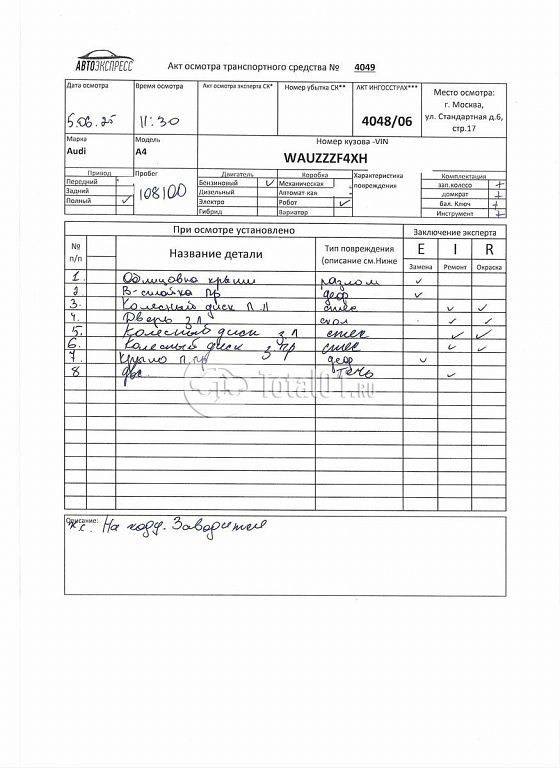 АВТОЭКСПРЕСС
Акт осмотра транспортного средства № 4049
Дата осмотра
Время осмотра
Акт осмотра эксперта СК*
Номер убытка СК**
АКТ ИНГОССТРАХ***
Место осмотра:
г. Москва,
ул. Стандартная д.6,
стр.17
5.06.25
11:30
4048/06
Марка
Модель
Номер кузова -VIN
Audi
A4
WAUZZZF4XH
Привод
Пробег
Двигатель
Коробка
Характеристика повреждения
Комплектация
Передний
Бензиновый ✓
Механическая
зап.колесо +
Задний
108100
Дизельный
Автомат-кая
домкрат +
Полный ✓
Электро
Робот ✓
бал. Ключ +
Гибрид
Вариатор
Инструмент +
При осмотре установлено
Заключение эксперта
№ п/п
Название детали
Тип повреждения (описание см.Ниже
E I R
Замена Ремонт Окраска
1. Облицовка крыши разлом ✓
2 В-стойка пр деф ✓
3. Колесный диск П.Л ✓ ✓
4. Дверь з Л скол ✓ ✓
5. Колесный диск з Л ✓ ✓
6. Колесный диск з пр ✓ ✓
7. П.пр деф ✓
8 двс течь ✓
Total01.RU
Описание:
На ходу. Заводится